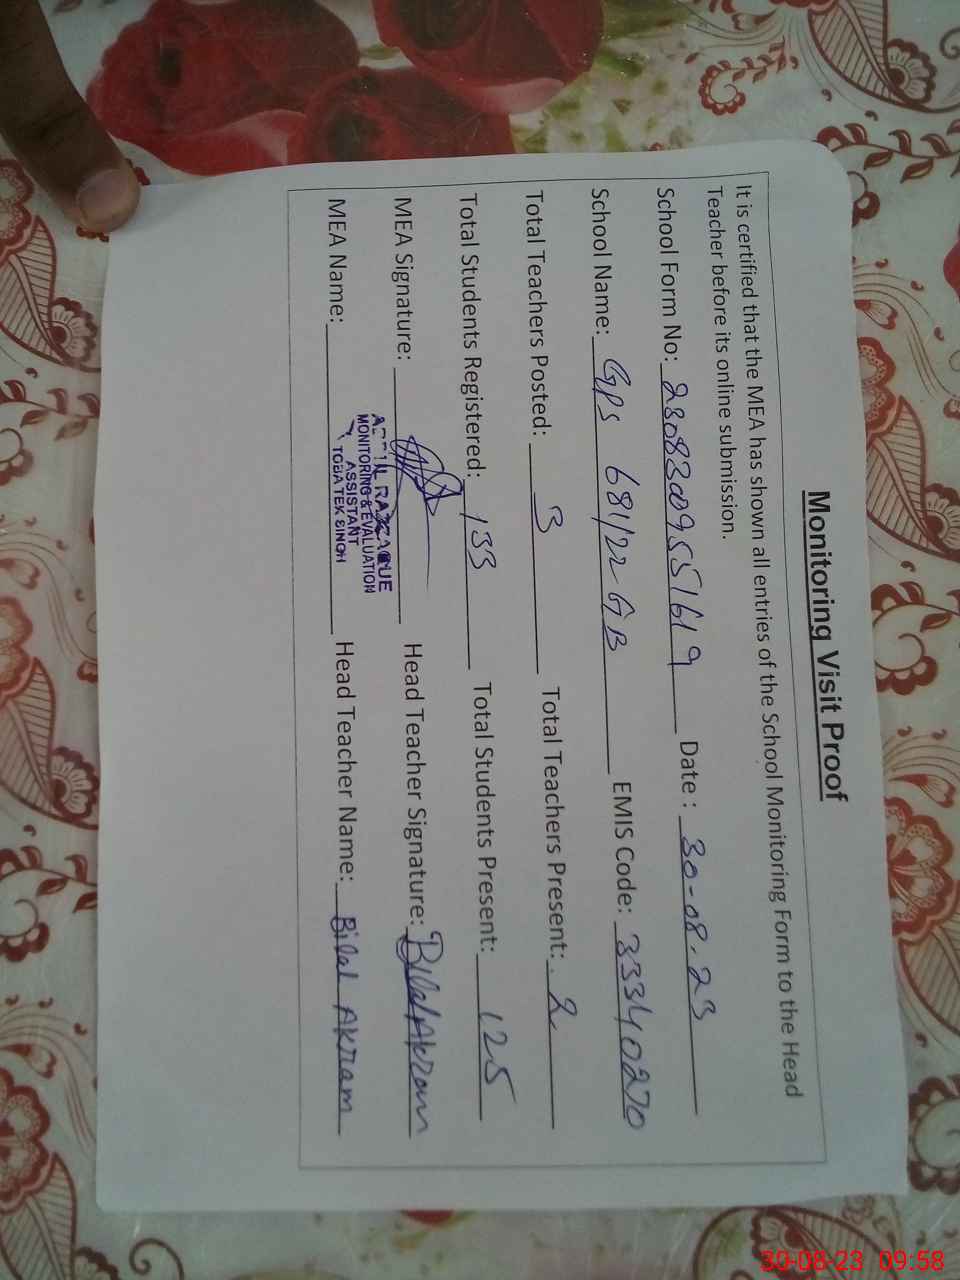 Monitoring Visit Proof
It is certified that the MEA has shown all entries of the School Monitoring Form to the Head
Teacher before its online submission.
School Form No: 28083009551619 Date : 30-08-23
School Name: GPS 681/22 GB EMIS Code: 33340270
Total Teachers Posted: 3 Total Teachers Present: 2
Total Students Registered: 133 Total Students Present: 125
MEA Signature: Head Teacher Signature: Bilal Akram
RAZZAQUE
MONITORING & EVALUATION
ASSISTANT
TOBA TEK SINGH
MEA Name: Head Teacher Name: Bilal Akram
30-08-23 09:58